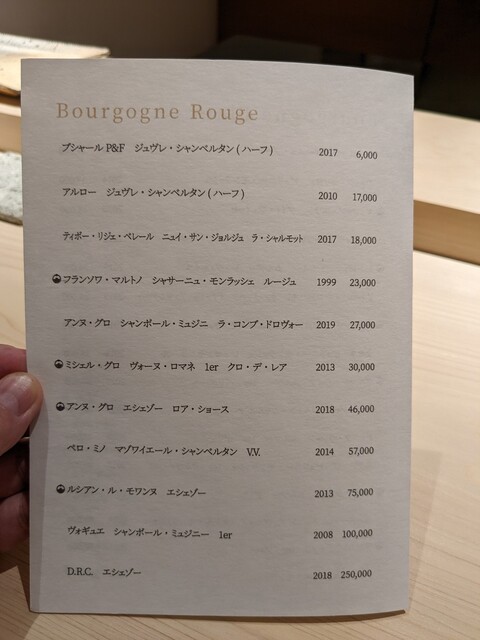 Bourgogne Rouge
ブシャール P&F ジュヴレ・シャンベルタン ( ハーフ ) 2017 6,000
アルロー ジュヴレ・シャンベルタン ( ハーフ ) 2010 17,000
ティボー・リジェ・ベレール ニュイ・サン・ジョルジュ ラ・シャルモット 2017 18,000
フランソワ・マルトノ シャサーニュ・モンラッシェ ルージュ 1999 23,000
アンヌ・グロ シャンボール・ミュジニ ラ・コンブ・ドロヴォー 2019 27,000
ミシェル・グロ ヴォーヌ・ロマネ 1er クロ・デ・レア 2013 30,000
アンヌ・グロ エシェゾー ロア・ショース 2018 46,000
ペロ・ミノ マゾワイエール・シャンベルタン V.V. 2014 57,000
ルシアン・ル・モワンヌ エシェゾー 2013 75,000
ヴォギュエ シャンボール・ミュジニー 1er 2008 100,000
D.R.C. エシェゾー 2018 250,000